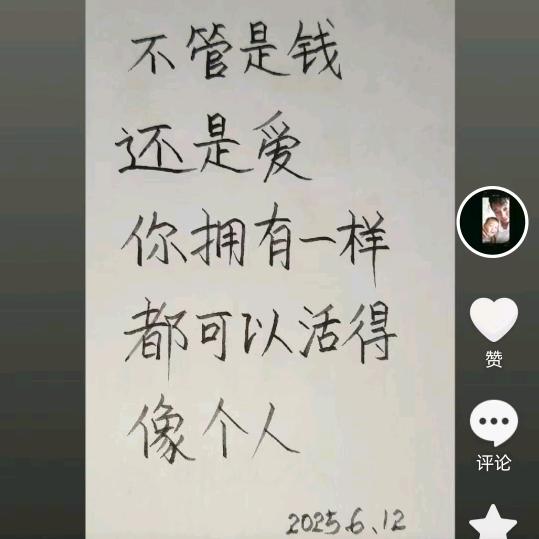 不管是钱
还是爱
你拥有一样
都可以活得
像个人
2025.6.12
赞
评论